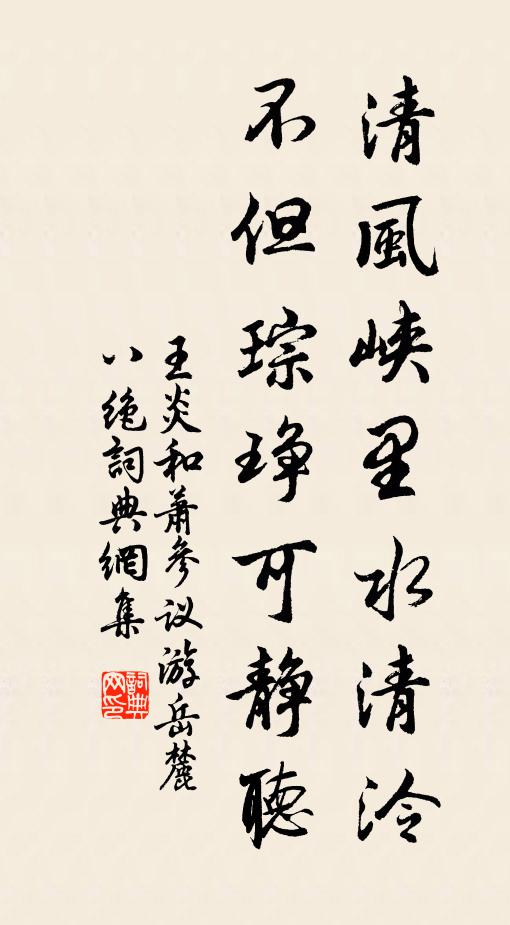 清風峡里水清泠
不但琮琤可静聽
王炎和蕭參议游岳麓
八绝詞典網集
詞典网印